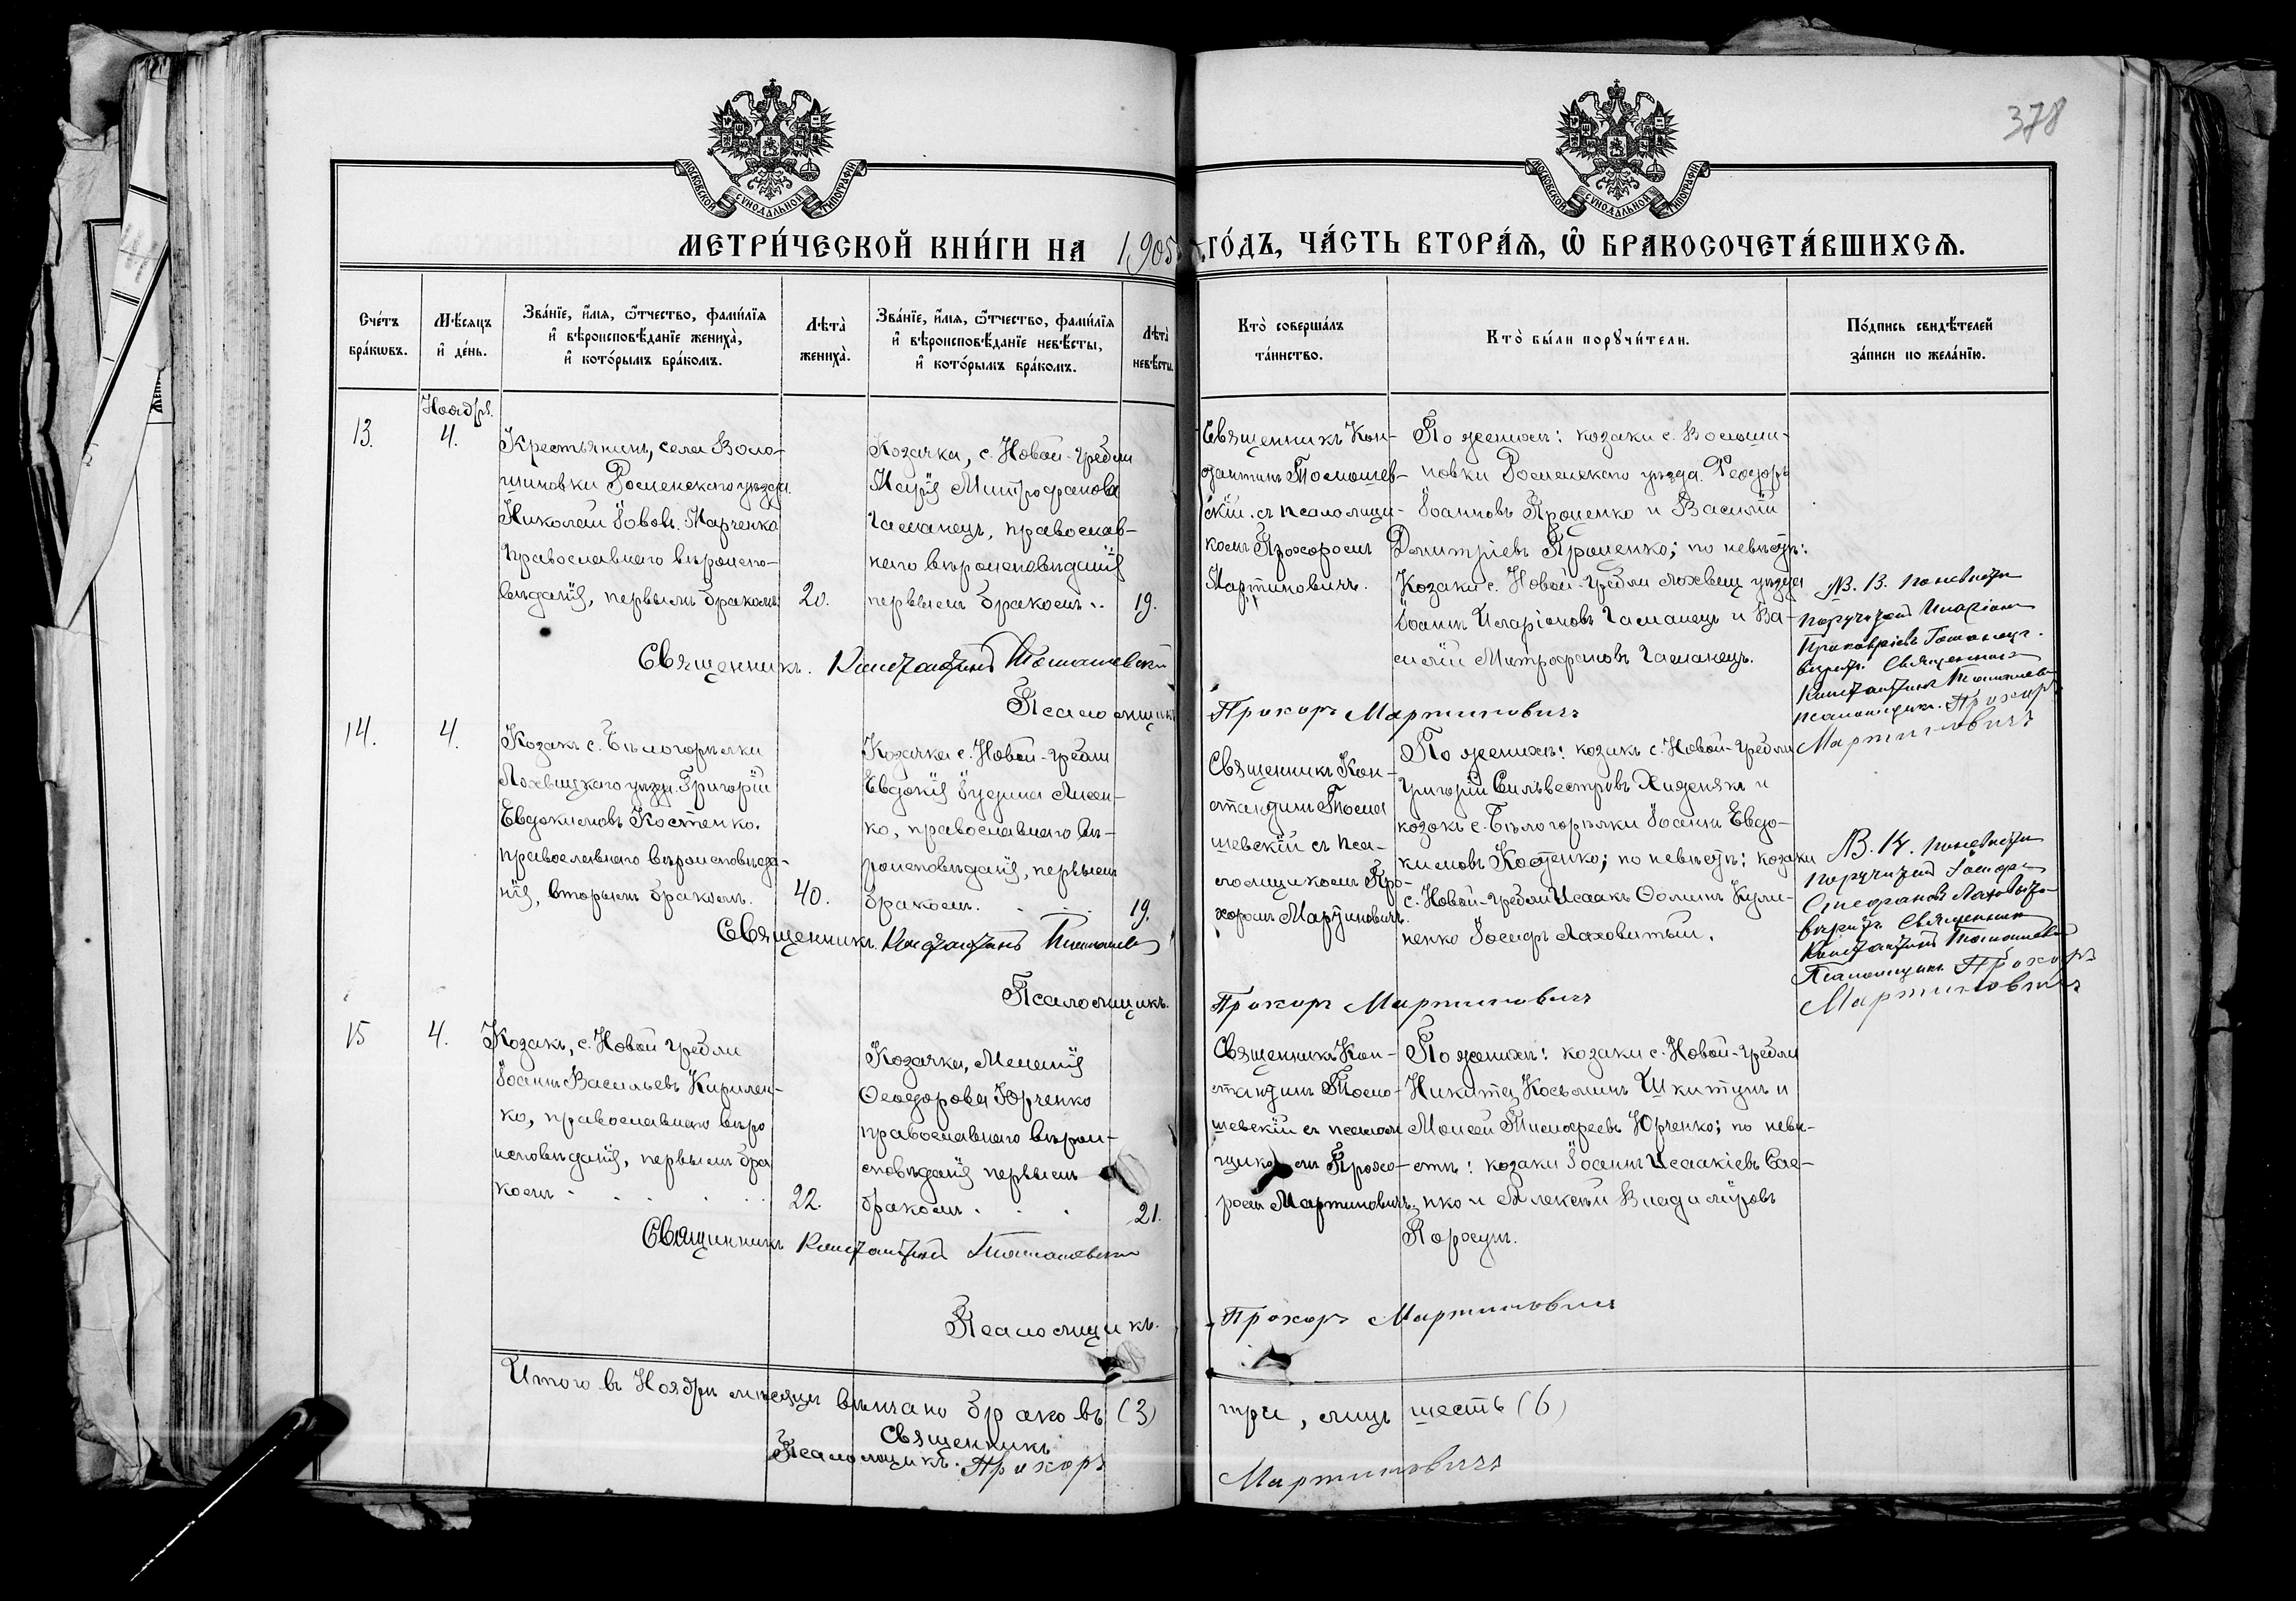 378
МОСКОВСКОЙ СѴНОДАЛЬНОЙ ТИПОГРАФІИ
МОСКОВСКОЙ СѴНОДАЛЬНОЙ ТИПОГРАФІИ
МЕТРИ́ЧЕСКОЙ КНИ́ГИ НА 1905 ГО́ДЪ, ЧА́СТЬ ВТОРА́Ѧ, Ѽ БРАКОСОЧЕТА́ВШИХСѦ.
Сче́тъ
бра́кѡвъ.
Мѣ́сѧцъ
и҆ де́нь.
Зва́нїе, и҆́мѧ, ѻ҆́тчество, фами́лїѧ
и҆ вѣроисповѣ́данїе жениха̀,
и҆ кото́рымъ бра́комъ.
Лѣта̀
жениха̀.
Зва́нїе, и҆́мѧ, ѻ҆́тчество, фами́лїѧ
и҆ вѣроисповѣ́данїе невѣ́сты,
и҆ кото́рымъ бра́комъ.
Лѣта̀
невѣ́сты.
Кто̀ соверша́лъ
та́инство.
Кто̀ бы́ли порꙋчи́тели.
По́дпись свидѣ́телей
за́писи по жела́нїю.
Ноябрь.
13.
4.
Крестьянинъ, села Воло-
шиновки Роменскаго уѣзда.
Николай Іовов. Марченко
православнаго вѣроиспо-
вѣданія, первымъ бракомъ
20.
Козачка, с. Новой-Гребли
Марія Митрофанова
Гаманецъ, православ-
наго вѣроисповѣданія
первымъ бракомъ..
19.
Священникъ Кон-
стантинъ Томашев-
скій съ псаломщи-
комъ Прохоромъ
Мартиновичъ.
По женихѣ: козаки с. Волоши-
новки Роменскаго уѣзда Ѳеодоръ
Іоанновъ Яроценко и Василій
Дмитріевъ Яроценко; по невѣстѣ:
Козаки с. Новой-Гребли Лохвиц уѣзда
Іоаннъ Иларіоновъ Гаманецъ и Ва-
силій Митрофановъ Гаманецъ.
Священникъ. Константинъ Томашевскій
Псаломщикъ
Прохоръ Мартиновичъ
NB. 13. по невѣсти
Гаманецъ.
Священникъ
Константинъ Томашевскій
псаломщикъ. Прохоръ
Мартиновичъ
14.
4.
Козакъ с. Бѣлогорѣлки
Лохвицкаго уѣзда Григорій
Евдокимовъ Костенко.
православнаго вѣроисповѣда-
нія, вторымъ бракомъ.
40.
Козачка с. Новой-Гребли
Евдокія Іудина Лисен-
ко, православнаго вѣ-
роисповѣданія, первымъ
бракомъ. . .
19.
Священникъ Кон-
стантинъ Тома
шевскій съ пса-
ломщикомъ Про-
хоромъ Мартиновичъ.
По женихѣ: козакъ с. Новой-Гребли
Григорій Сильвестровъ Хиденякъ и
козакъ с. Бѣлогорѣлки Іоаннъ Евдо-
кимовъ Костенко; по невѣстѣ: козаки
с. Новой-Гребли Исаакъ Ѳоминъ Кули-
ненко Іосифъ Лаховитый.
Священникъ. Константинъ Томашевскій
Псаломщикъ.
Прохоръ Мартиновичъ
NB. 14. по невѣсти
Священникъ
Константинъ Томашевскій
Псаломщикъ Прохоръ
Мартиновичъ
15
4.
Козакъ, с. Новой Гребли
Іоаннъ Васильевъ Кирилен-
ко, православнаго вѣро
исповѣданія, первымъ бра
комъ . . . . .
22.
Козачка, Меланія
Ѳеодорова Юрченко
православнаго вѣрои-
сповѣданія первымъ
бракомъ . . .
21.
Священникъ Кон-
стантинъ Тома-
шевскій съ псалом
щикомъ Прохо-
ромъ Мартиновичъ
По женихѣ: козаки с. Новой-Гребли
Никита Косьминъ Шкитунъ и
Моисей Тимофеевъ Юрченко; по невѣ-
стѣ: козаки Іоаннъ Исаакіевъ Сае-
нко и Алексѣй Владиміровъ
Порхунъ.
Священникъ Константинъ Томашевскій
Псаломщикъ.
Прохоръ Мартиновичъ
Итого въ Ноябрѣ мѣсяцѣ вѣнчано браковъ (3) три, лицъ шесть (6)
Священникъ
Псаломщикъ. Прохоръ Мартиновичъ